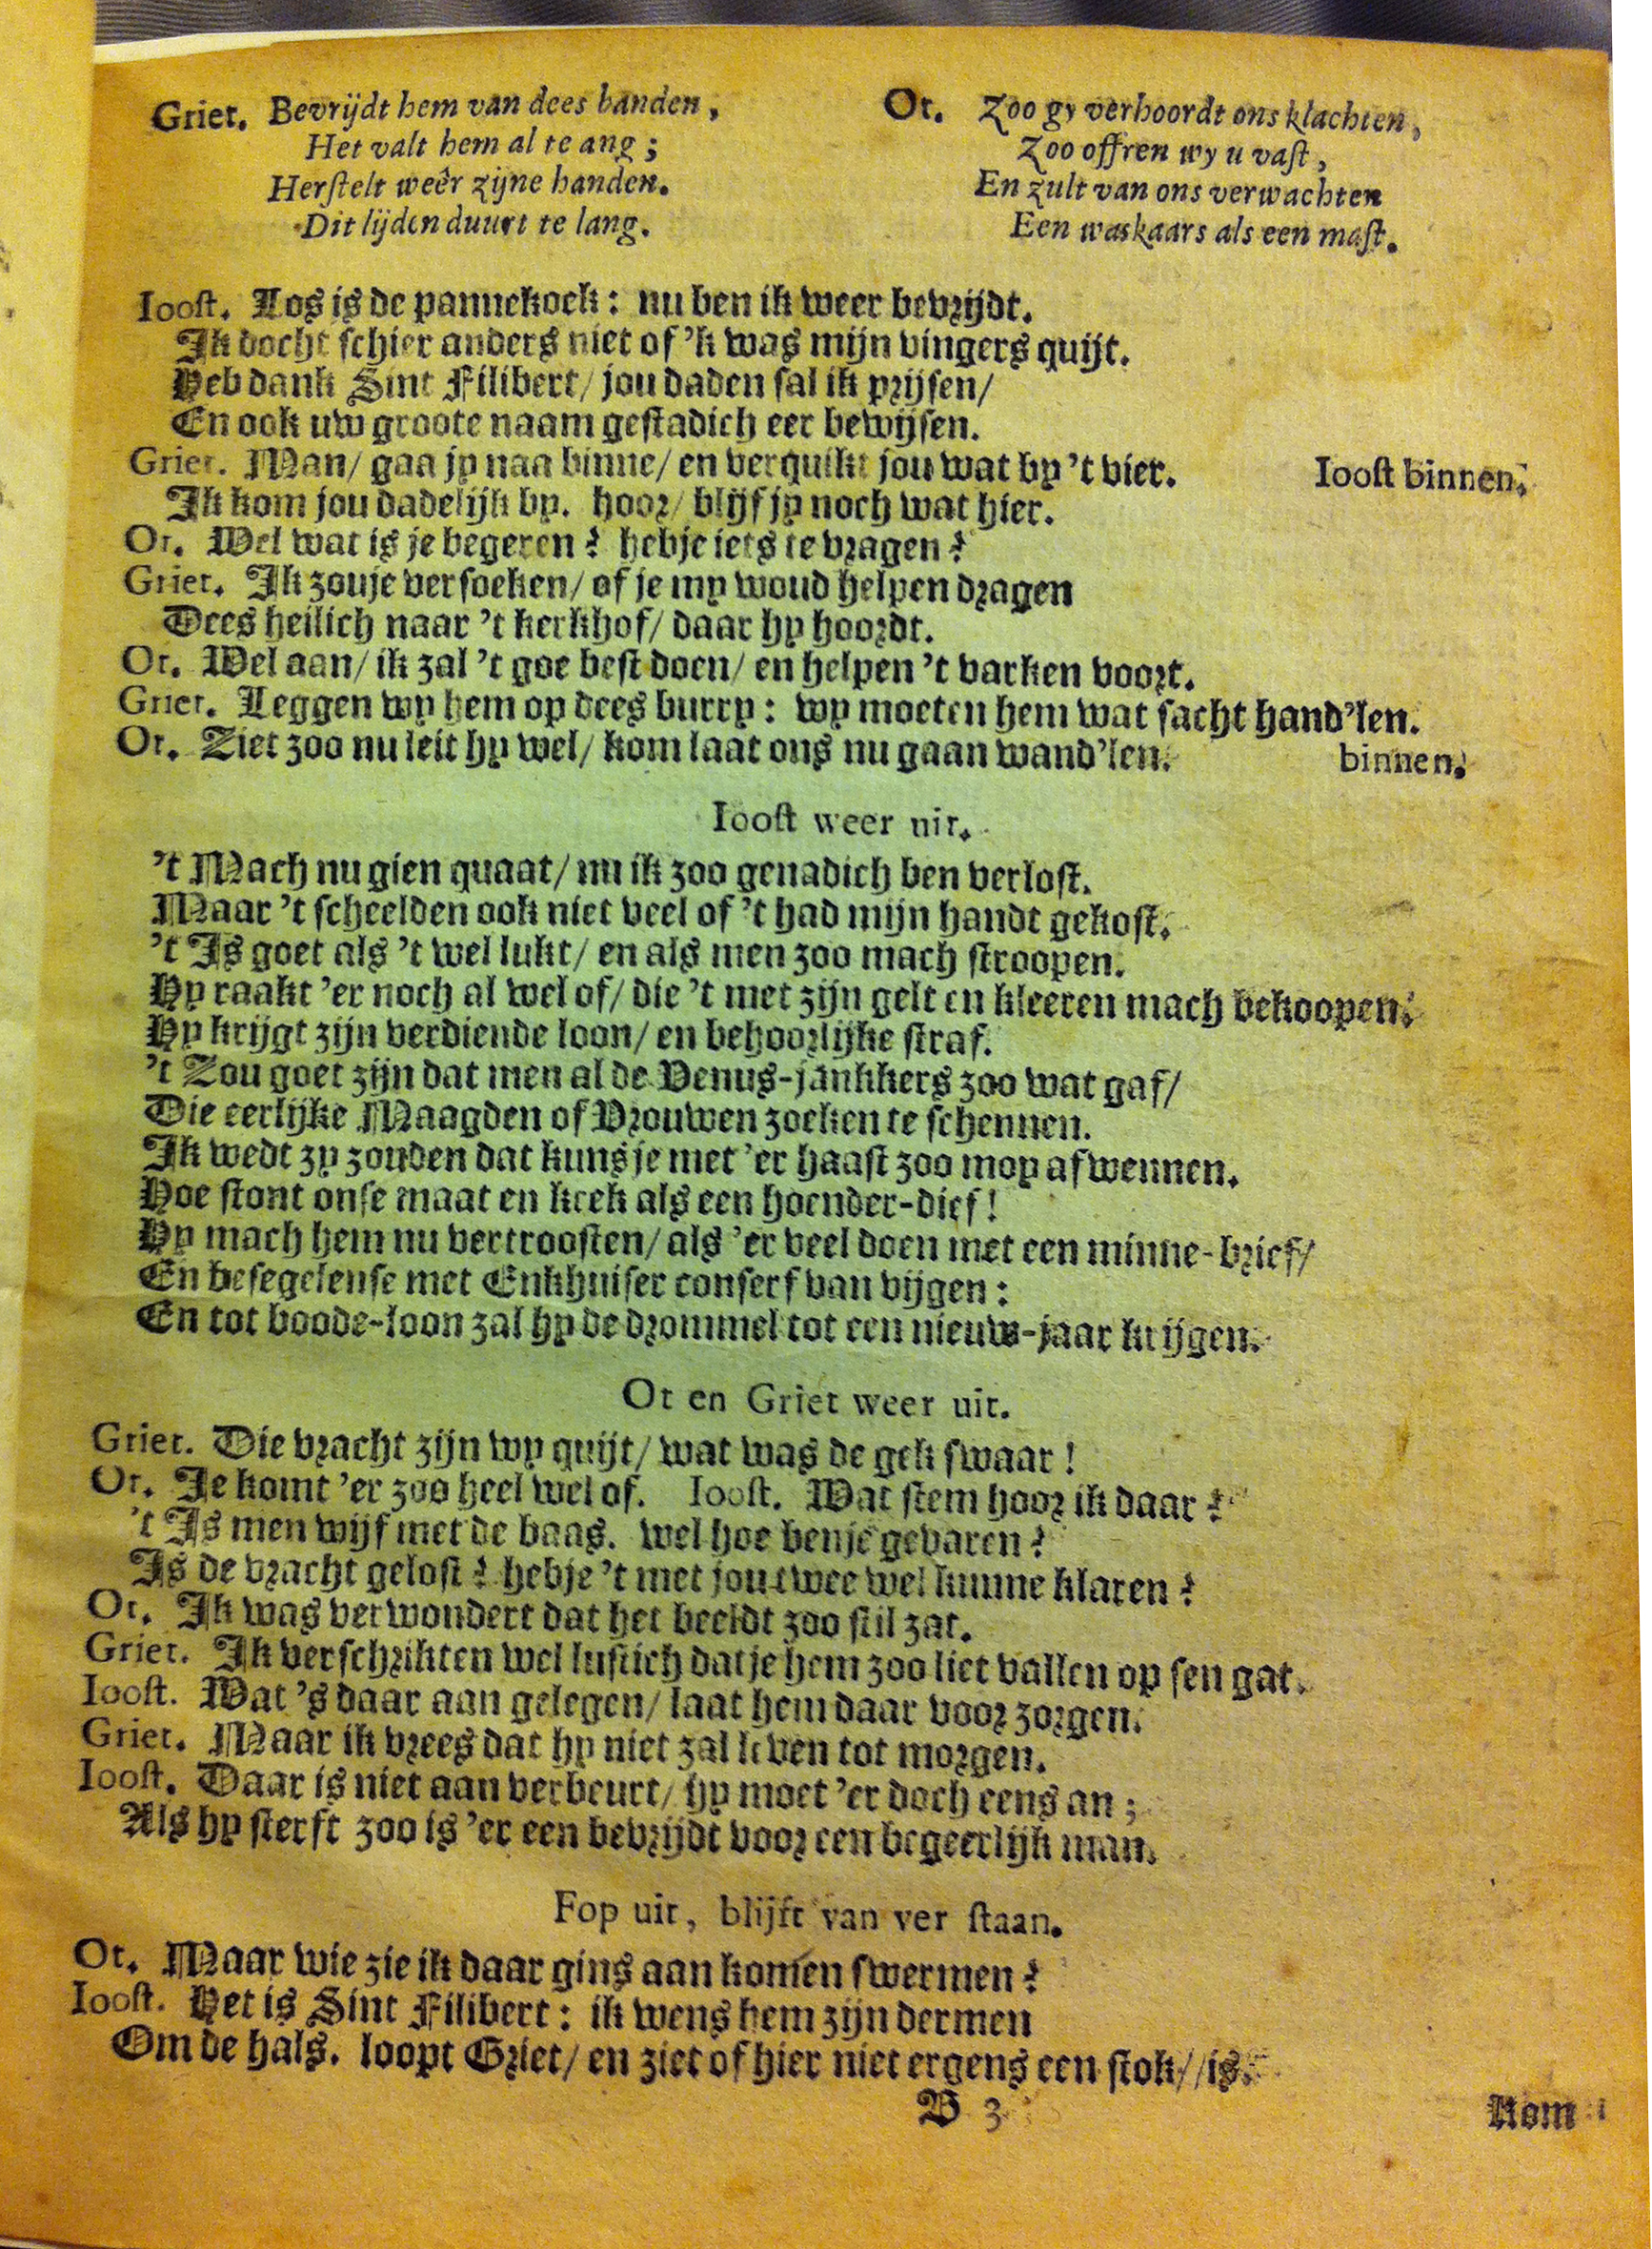 Griet. Bevrijdt hem van dees banden,
Het valt hem al te ang;
Herstelt weêr zijne handen.
Dit lijden duurt te lang.
Ot. Zoo gy verhoordt ons klachten,
Zoo offren wy u vast,
En zult van ons verwachten
Een waskaars als een mast.
Ioost. Los is de pannekoek: nu ben ik weer bevrijdt.
Ik docht schier anders niet of 'k was mijn vingers quijt.
Heb dank Sint Filibert/ jou daden sal ik prijsen/
En ook uw groote naam gestadich eer bewijsen.
Griet. Man/ gaa jy naa binne/ en verquikt jou wat by 't vier.
Ioost binnen.
Ik kom jou dadelijk by. hoor/ blijf jy noch wat hier.
Ot. Wel wat is je begeren? hebje iets te vragen?
Griet. Ik zouje versoeken/ of je my woud helpen dragen
Dees heilich naar 't kerkhof/ daar hy hoordt.
Ot. Wel aan/ ik zal 't goe best doen/ en helpen 't varken voort.
Griet. Leggen wy hem op dees burry: wy moeten hem wat sacht hand'len.
Ot. Ziet zoo nu leit hy wel/ kom laat ons nu gaan wand'len.
binnen.
Ioost weer uit.
't Mach nu gien quaat/ nu ik zoo genadich ben verlost.
Maar 't scheelden ook niet veel of 't had mijn handt gekost.
't Is goet als 't wel lukt/ en als men zoo mach stroopen.
Hy raakt 'er noch al wel of/ die 't met zijn gelt en kleeren mach bekoopen.
Hy krijgt zijn verdiende loon/ en behoorlijke straf.
't Zou goet zijn dat men al de Venus-jankkers zoo wat gaf/
Die eerlijke Maagden of Vrouwen zoeken te schennen.
Ik wedt zy zouden dat kunsje met 'er haast zoo moy afwennen.
Hoe stont onse maat en keek als een hoender-dief!
Hy mach hem nu vertroosten/ als 'er veel doen met een minne-brief/
En besegelense met Enkhuiser conserf van vijgen:
En tot boode-loon zal hy de drommel tot een nieuw-jaar krijgen.
Ot en Griet weer uit.
Griet. Die vracht zijn wy quijt/ wat was de gek swaar!
Ot. Je komt 'er zoo heel wel of. Ioost. Wat stem hoor ik daar?
't Is men wijf met de baas. wel hoe benje gevaren?
Is de vracht gelost? hebje 't met jou twee wel kunne klaren?
Ot. Ik was verwondert dat het beeldt zoo stil zat.
Griet. Ik verschrikten wel lustich datje hem zoo liet vallen op sen gat.
Ioost. Wat 's daar aan gelegen/ laat hem daar voor zorgen.
Griet. Maar ik vrees dat hy niet zal leven tot morgen.
Ioost. Daar is niet aan verbeurt/ hy moet 'er doch eens an;
Als hy sterft zoo is 'er een bevrijdt voor een begeerlijk man.
Fop uit, blijft van ver staan.
Ot. Maar wie zie ik daar gins aan komen swermen?
Ioost. Het is Sint Filibert: ik wens hem zijn dermen
Om de hals. loopt Griet/ en ziet of hier niet ergens een stok//is.
B 3
Kom